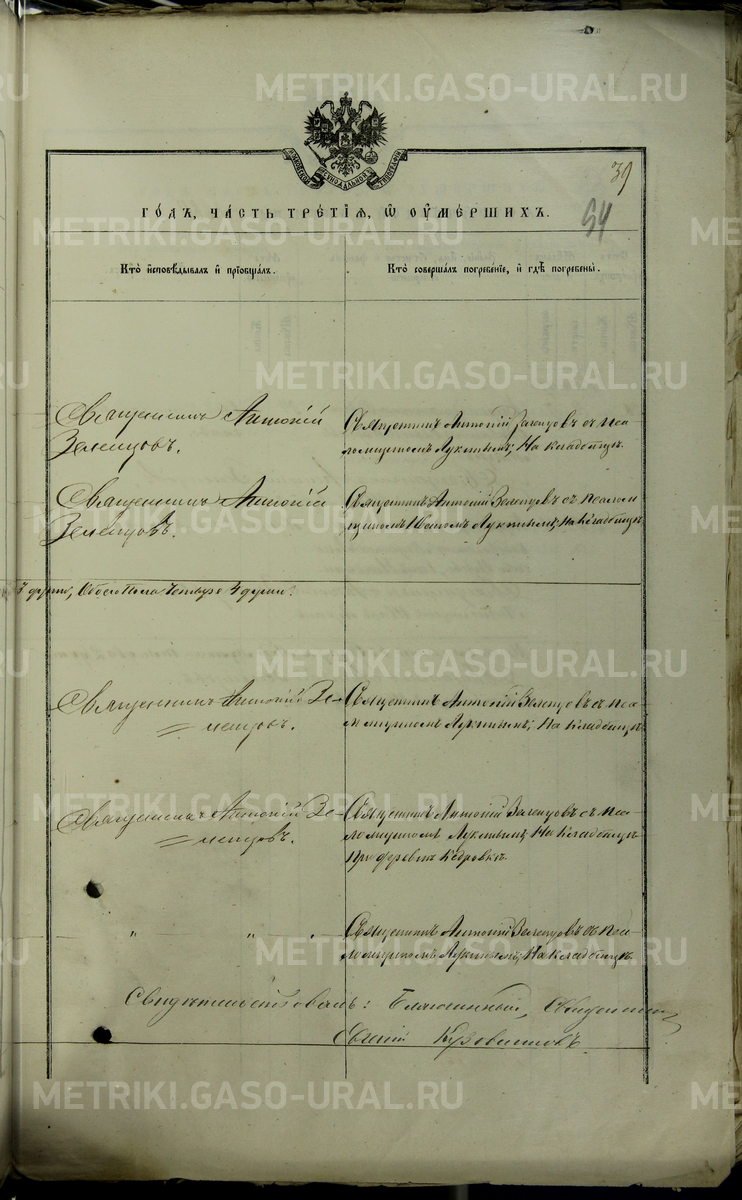 39
54
МОСКОВСКОЙ СУНОДАЛЬНОЙ ТИПОГРАФІИ
ГОДЪ, ЧАСТЬ ТРЕТІѦ, Ѡ ОУМЕРШИХЪ.
Кто исповѣдывалъ и пріобщалъ.
Кто совершалъ погребеніе, и гдѣ погребены.
Священникъ Антоній
Зеленцовъ.
Священникъ Антоній Зеленцовъ съ пса-
ломщикомъ Лукинымъ; На кладбищѣ.
Священникъ Антоній
Зеленцовъ.
Священникъ Антоній Зеленцовъ съ псалом
щикомъ Лукинымъ; На кладбищѣ
другіе, Обоего пола четыре 4 души.
Священникъ Антоній Зе-
ленцовъ.
Священникъ Антоній Зеленцовъ съ пса-
ломщикомъ Лукинымъ; На кладбищѣ
Священникъ Антоній Зе-
ленцовъ.
Священникъ Антоній Зеленцовъ съ пса-
ломщикомъ Лукинымъ; На кладбищѣ
при деревнѣ Кедровкѣ.
" " "
Священникъ Антоній Зеленцовъ съ пса-
ломщикомъ Лукинымъ; На кладбищѣ
Свидѣтельствовалъ: Благочинный, Священникъ
Евгеній
METRIKI.GASO-URAL.RU